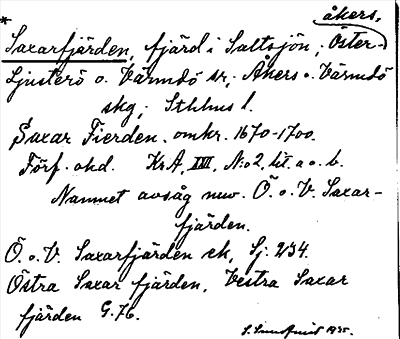 åkers,
* Saxarfjärden, fjärd i Saltsjön; Öster-
Ljusterö o. Värmdö sr; Åkers o. Värmdö
skg, Sthlms l.
Saxar Fierden. omkr. 1670-1700.
Förf. okd. KrA, XXI, N:o 2, lit. a o. b.
Namnet avsåg nuv. Ö. o. V. Saxar-
fjärden.
Ö. o. V. Saxarfjärden ek, Sj. 234.
Östra Saxar fjärden, Vestra Saxar
fjärden G. 76.
S. Sundqvist 1935.